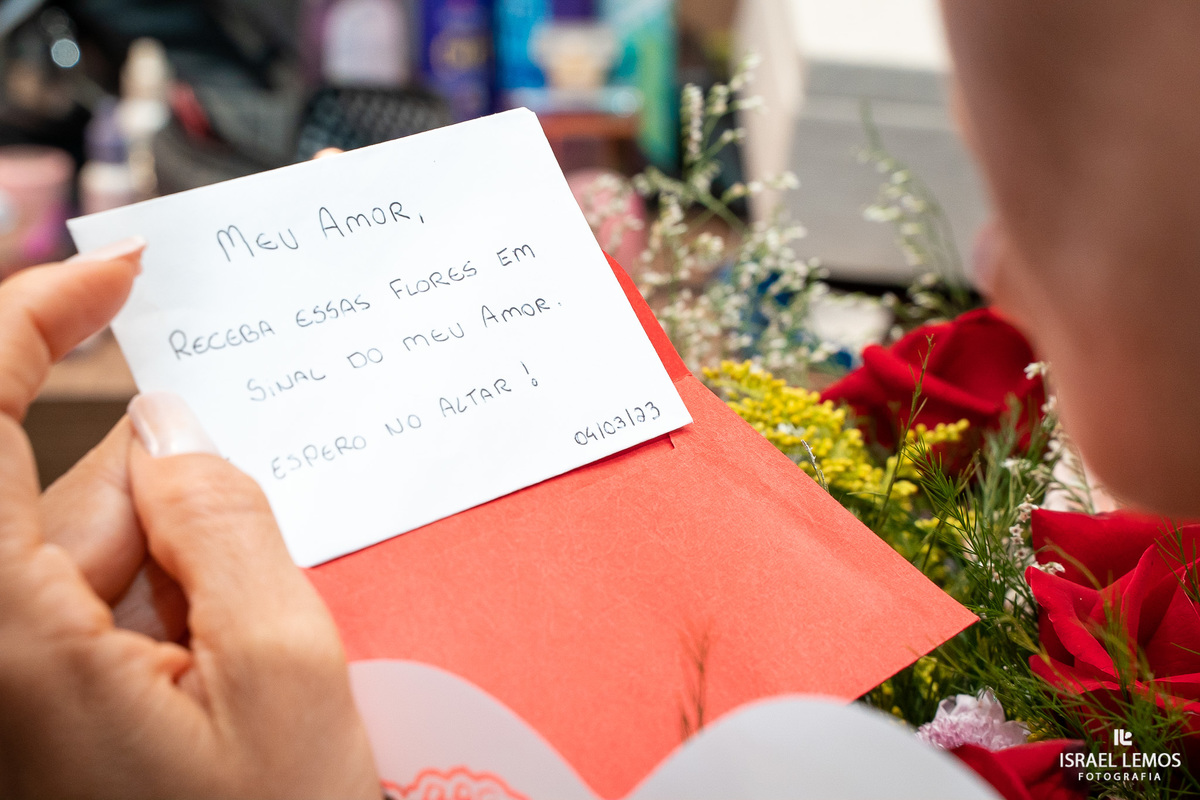 MEU AMOR,
RECEBA ESSAS FLORES EM
SINAL DO MEU AMOR.
ESPERO NO ALTAR!
04/03/23
ISRAEL LEMOS
FOTOGRAFIA